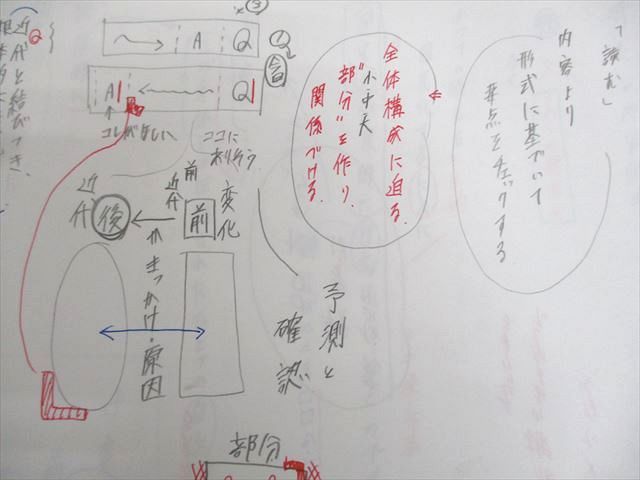 「読む」
内容より
形式に基づいて
要点をチェックする
全体構成に迫る.
小中大
"部分"を作り,
関係づける.
予測と
確認
変化
前
近代
前
後
近代
きっかけ・原因
③
A Q
①
A Q
コレがほしい
ココに
ありそう
Q
近代と結びつき、
部分